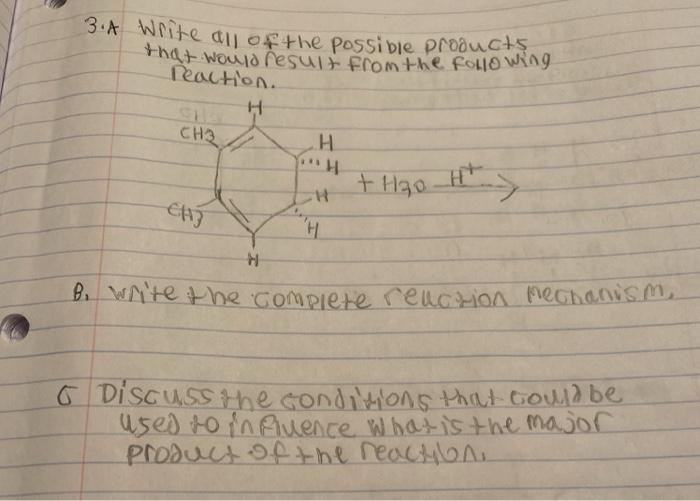 3.A Write all of the possible products
that would result from the following
reaction.
H
CH3
H
H
+ H2O H+
H
CH3
H
H
B. write the complete reaction mechanism.
C Discuss the conditions that could be
used to influence what is the major
product of the reaction.